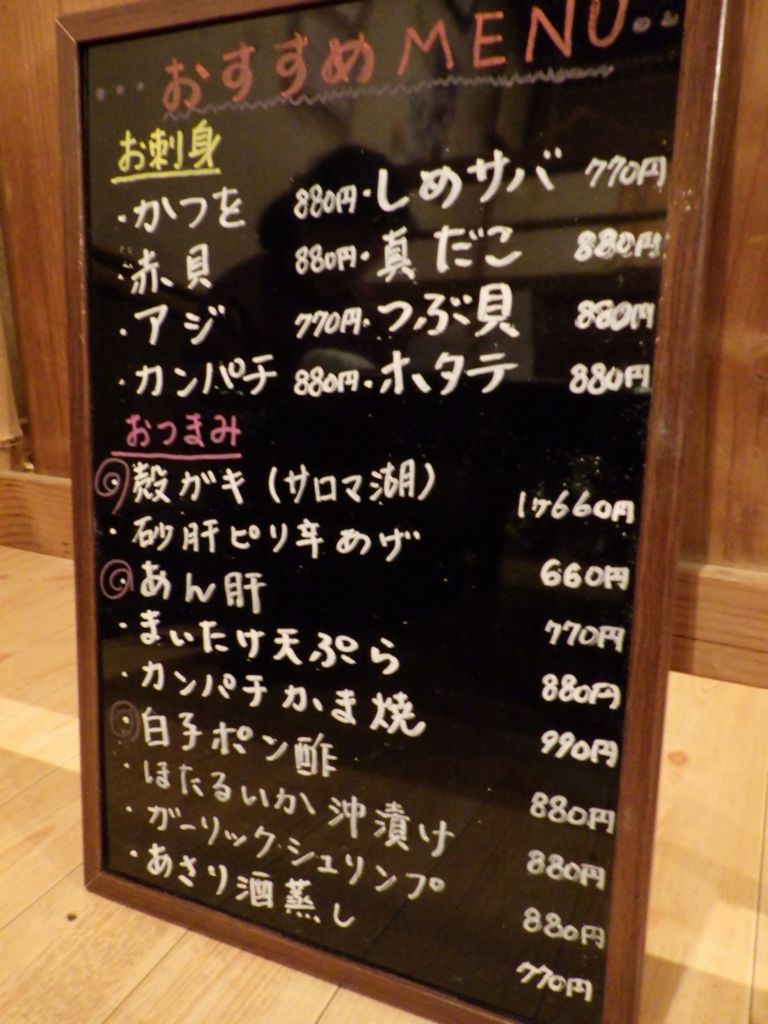 おすすめMENU
お刺身
・かつを 880円・しめサバ 770円
・赤貝 880円・真だこ 880円
・アジ 770円・つぶ貝 880円
・カンパチ 880円・ホタテ 880円
おつまみ
・殻ガキ(サロマ湖) 1ヶ660円
・砂肝ピリ辛あげ 660円
・あん肝 770円
・まいたけ天ぷら 880円
・カンパチかま焼 990円
・白子ポン酢 880円
・ほたるいか沖漬け 880円
・ガーリック・シュリンプ 880円
・あさり酒蒸し 770円